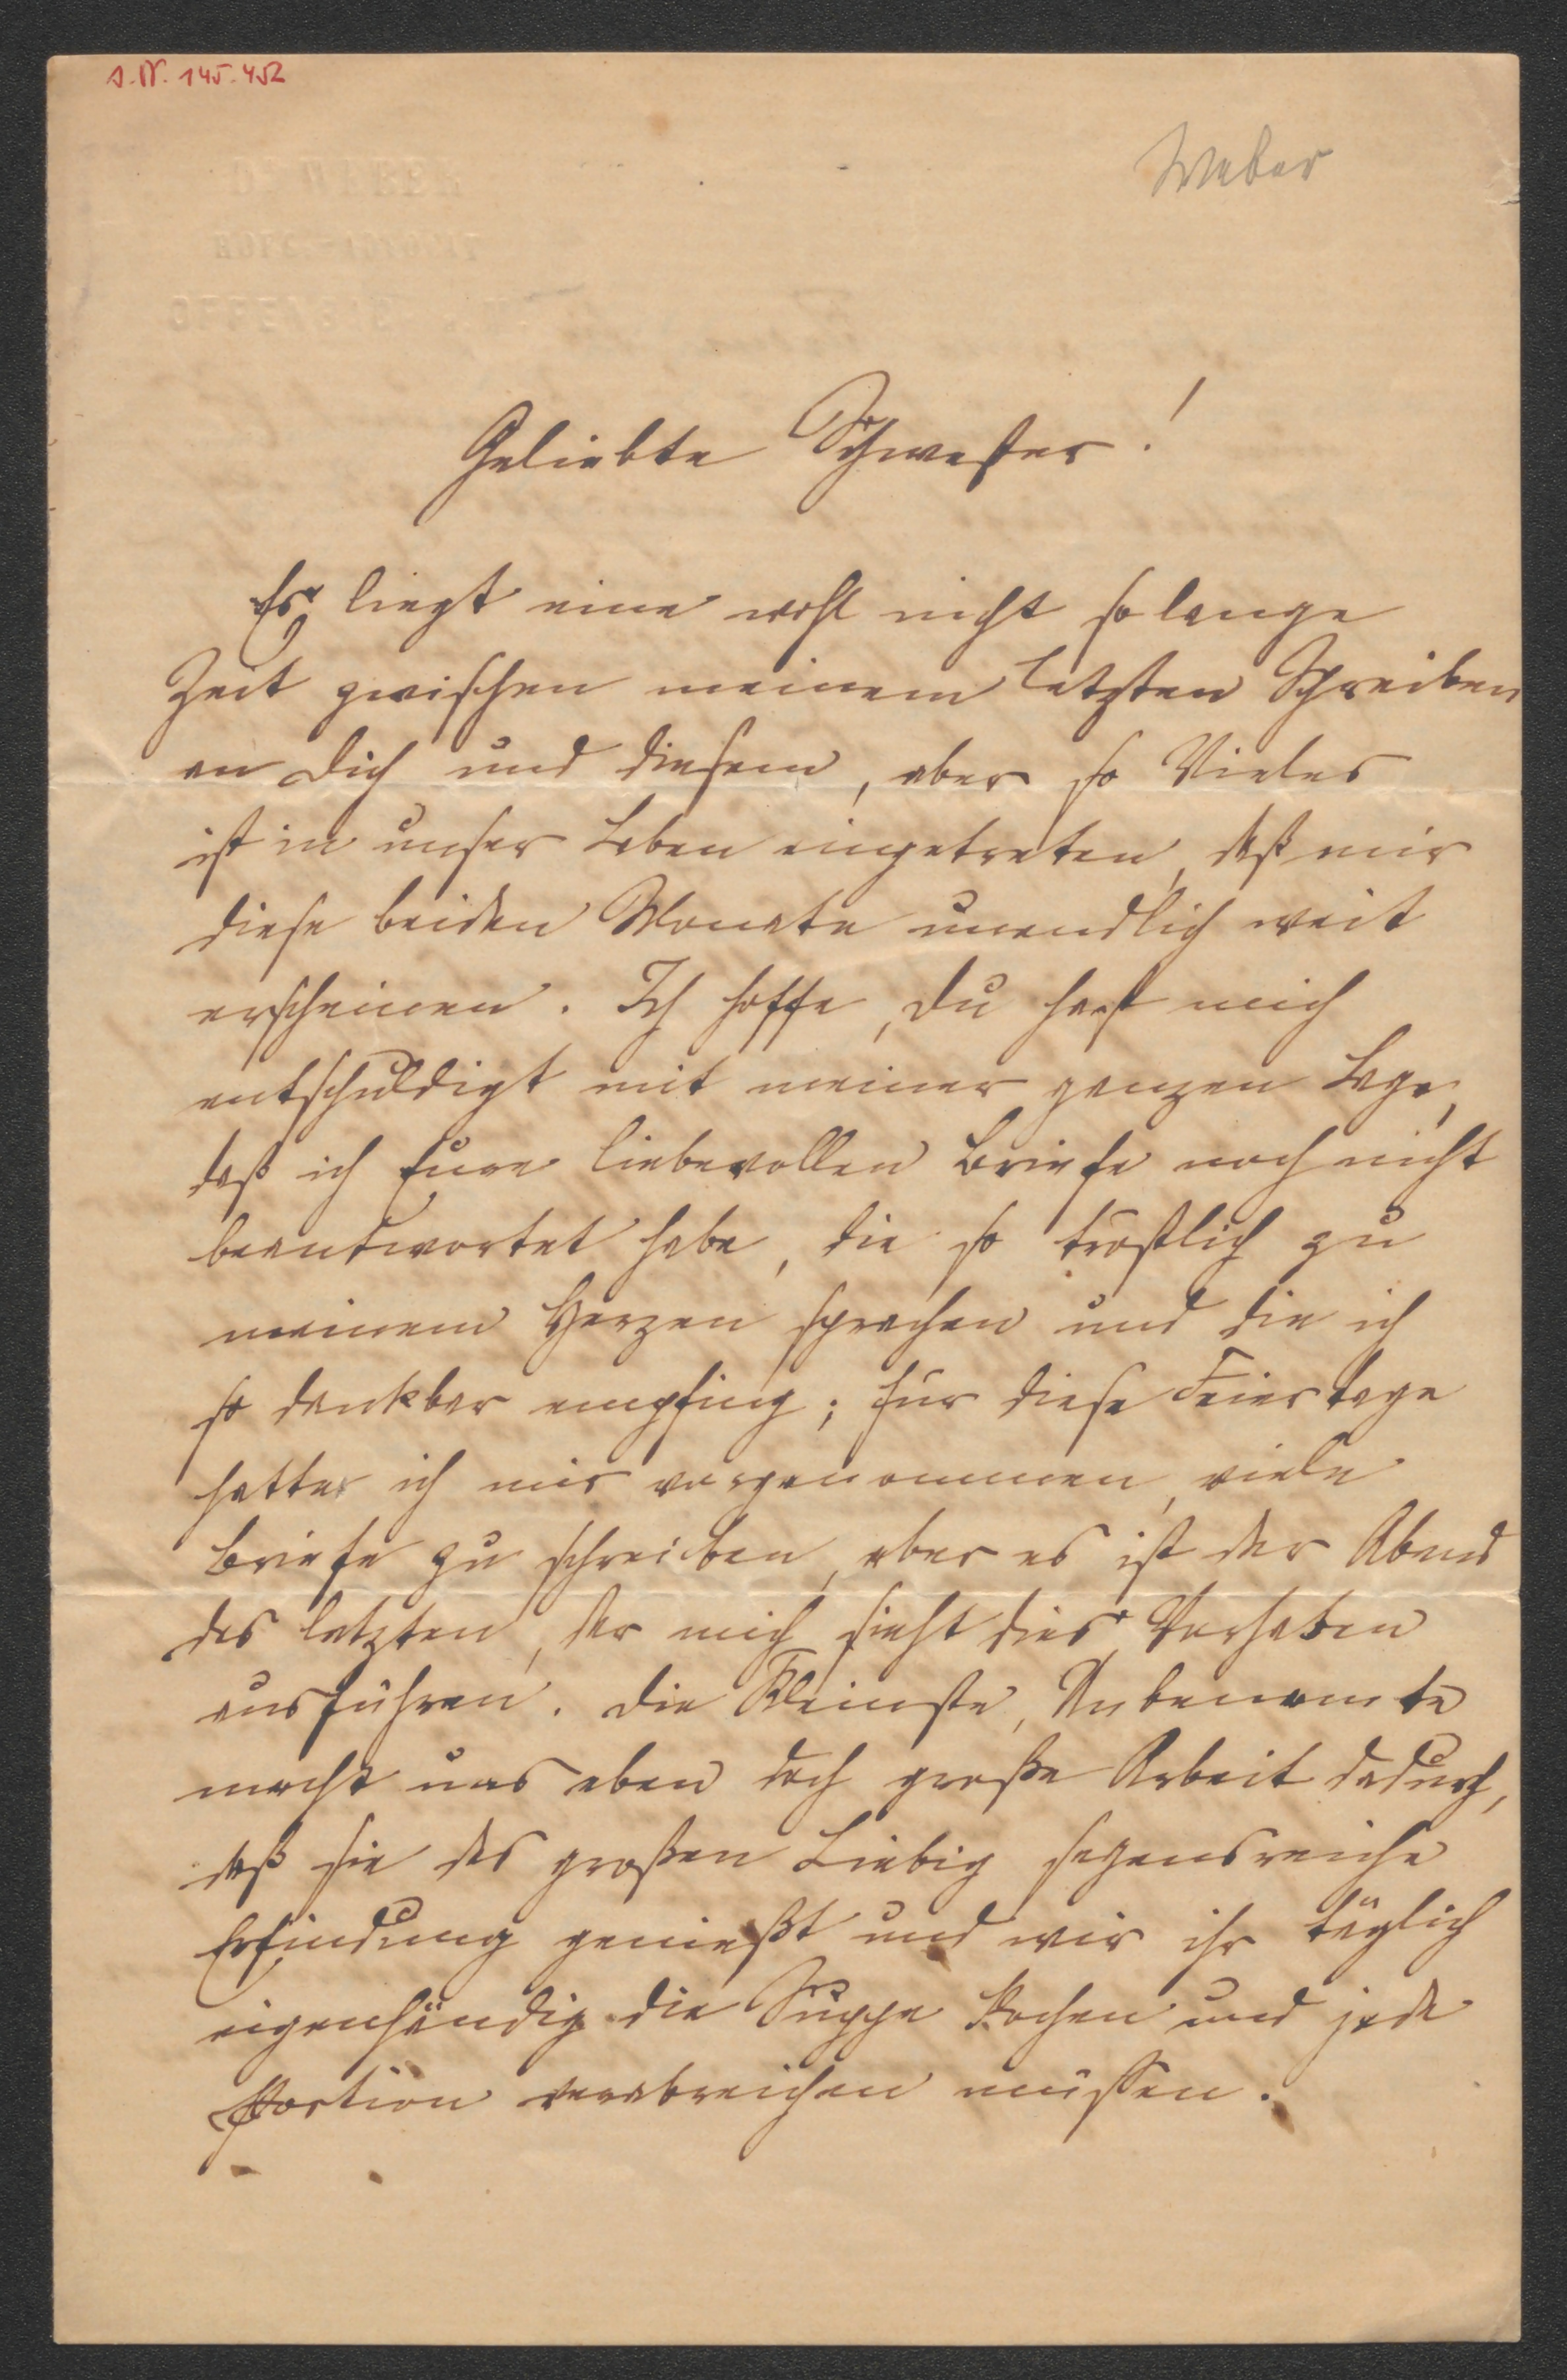 s. N. 145.452
Weber
Geliebte Schwester!
Es liegt eine wohl nicht so lange
Zeit zwischen meinem letzten Schreiben
an Dich und diesem, aber so Vieles
ist in unser Leben eingetreten, daß mir
diese beiden Monate unendlich weit
erscheinen. Ich hoffe, Du hast mich
entschuldigt mit meiner ganzen Lage,
daß ich Eure liebevollen Briefe noch nicht
beantwortet habe, die so tröstlich zu
meinem Herzen sprachen und die ich
so dankbar empfing; für diese Feiertage
hatte ich mir vorgenommen, viele
Briefe zu schreiben, aber es ist der Abend
des letzten, der mich sieht dies Vorhaben
ausführen. Die Kleinste, Unbenannte
macht uns eben doch große Arbeit dadurch,
daß sie des großen Liebig segensreiche
Erfindung genießt und wir ihr täglich
eigenhändig die Suppe kochen und jede
Portion verabreichen müssen.